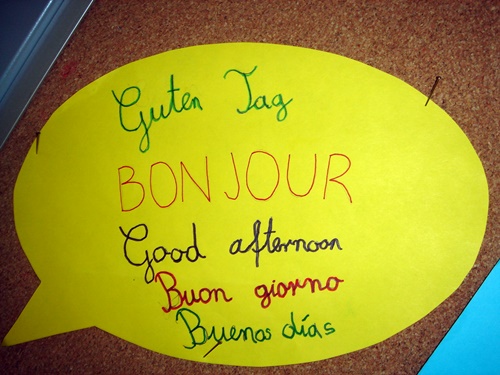 Guten Tag
BONJOUR
Good afternoon
Buon giorno
Buenos días